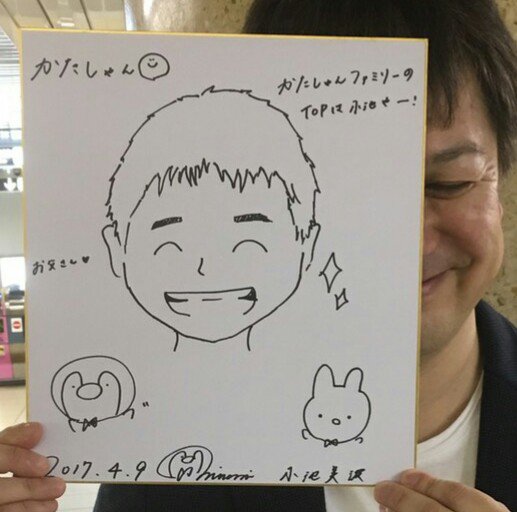 かたにしゃん
かたにしゃんファミリーの
TOPは小池やー！
お父さん♥
2017.4.9 minami 小池美波